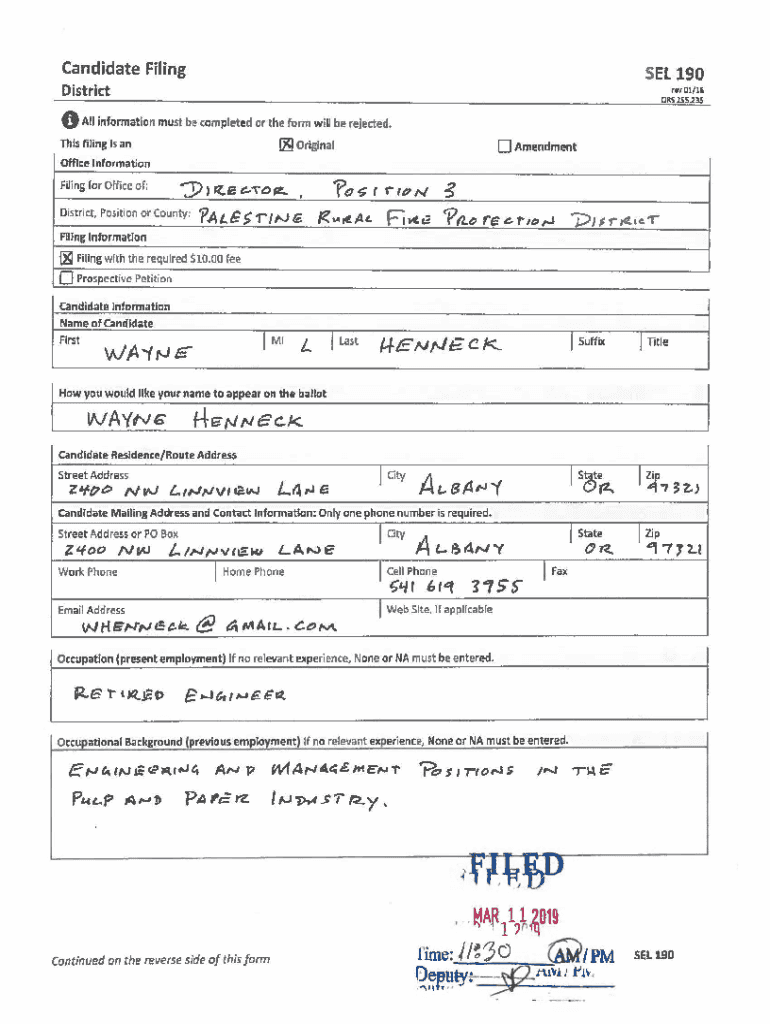 Candidate Filing
District
SEL 190
rev 01/16
ORS 255.235
All information must be completed or the form will be rejected.
This filing is an ☒ Original ☐ Amendment
Office Information
Filing for Office of: DIRECTOR, POSITION 3
District, Position or County: PALESTINE RURAL FIRE PROTECTION DISTRICT
Filing Information
☒ Filing with the required $10.00 fee
☐ Prospective Petition
Candidate Information
Name of Candidate
First WAYNE MI L Last HENNECK Suffix Title
How you would like your name to appear on the ballot
WAYNE HENNECK
Candidate Residence/Route Address
Street Address City State Zip
2400 NW LINNVIEW LANE ALBANY OR 97321
Candidate Mailing Address and Contact Information: Only one phone number is required.
Street Address or PO Box City State Zip
2400 NW LINNVIEW LANE ALBANY OR 97321
Work Phone Home Phone Cell Phone Fax
541 619 3955
Email Address Web Site, if applicable
WHENNECK@GMAIL.COM
Occupation (present employment) If no relevant experience, None or NA must be entered.
RETIRED ENGINEER
Occupational Background (previous employment) If no relevant experience, None or NA must be entered.
ENGINEERING AND MANAGEMENT POSITIONS IN THE
PULP AND PAPER INDUSTRY.
FILED
MAR 11 2019
Time: 11:30 AM / PM
Deputy:
Continued on the reverse side of this form
SEL 190